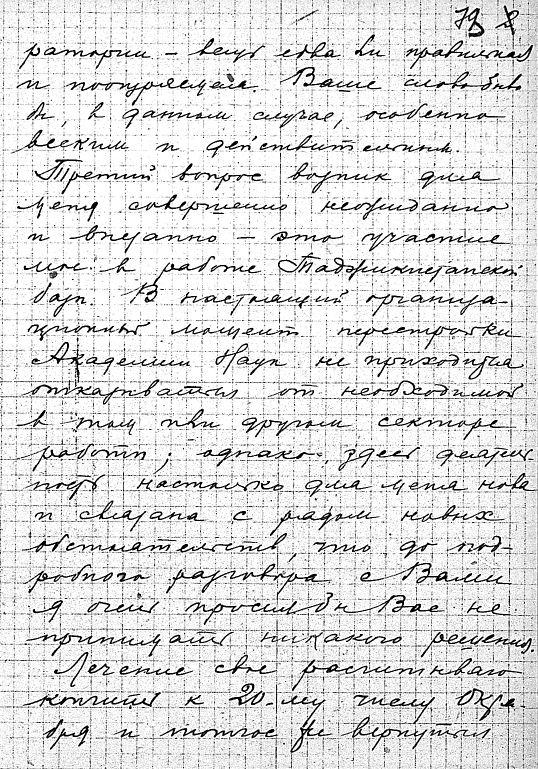 79 2
ратории – вещь едва ли правильная
и поощряемая. Ваше слово было
бы, в данном случае, особенно
веским и действительным.
Третий вопрос возник для
меня совершенно неожиданно
и внезапно – это участие
мое в работе Таджикистанской
базы. В настоящий организа-
ционный момент перестройки
Академии Наук не приходится
отказываться от необходимой
в том или другом секторе
работы; однако, здесь деятель-
ность настолько для меня нова
и связана с рядом новых
обстоятельств, что до под-
робного разговора с Вами
я очень просил бы Вас не
принимать никакого решения.
Лечение свое рассчитываю
кончить к 20-му числу Октя-
бря и тотчас же вернуться